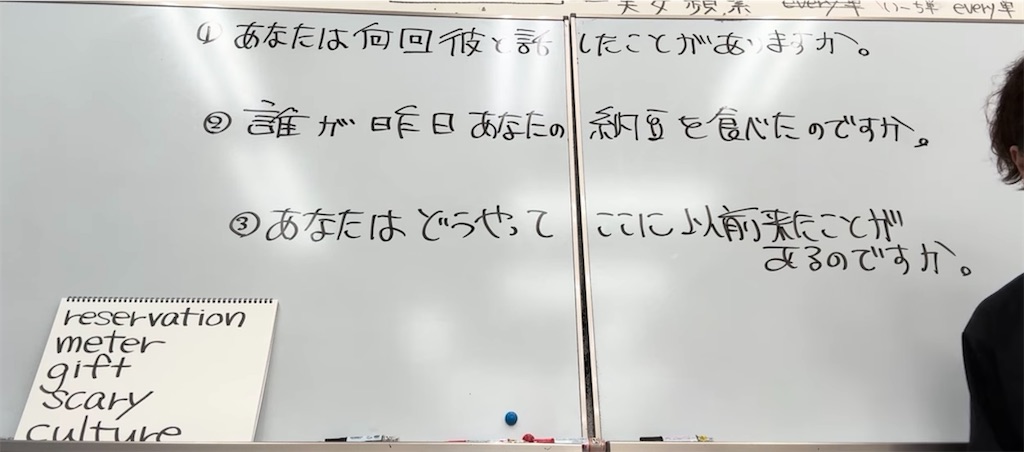 every単 いーち単 every単
① あなたは何回彼と話したことがありますか。
② 誰が昨日あなたの納豆を食べたのですか。
③ あなたはどうやってここに以前来たことが
あるのですか。
reservation
meter
gift
scary
culture